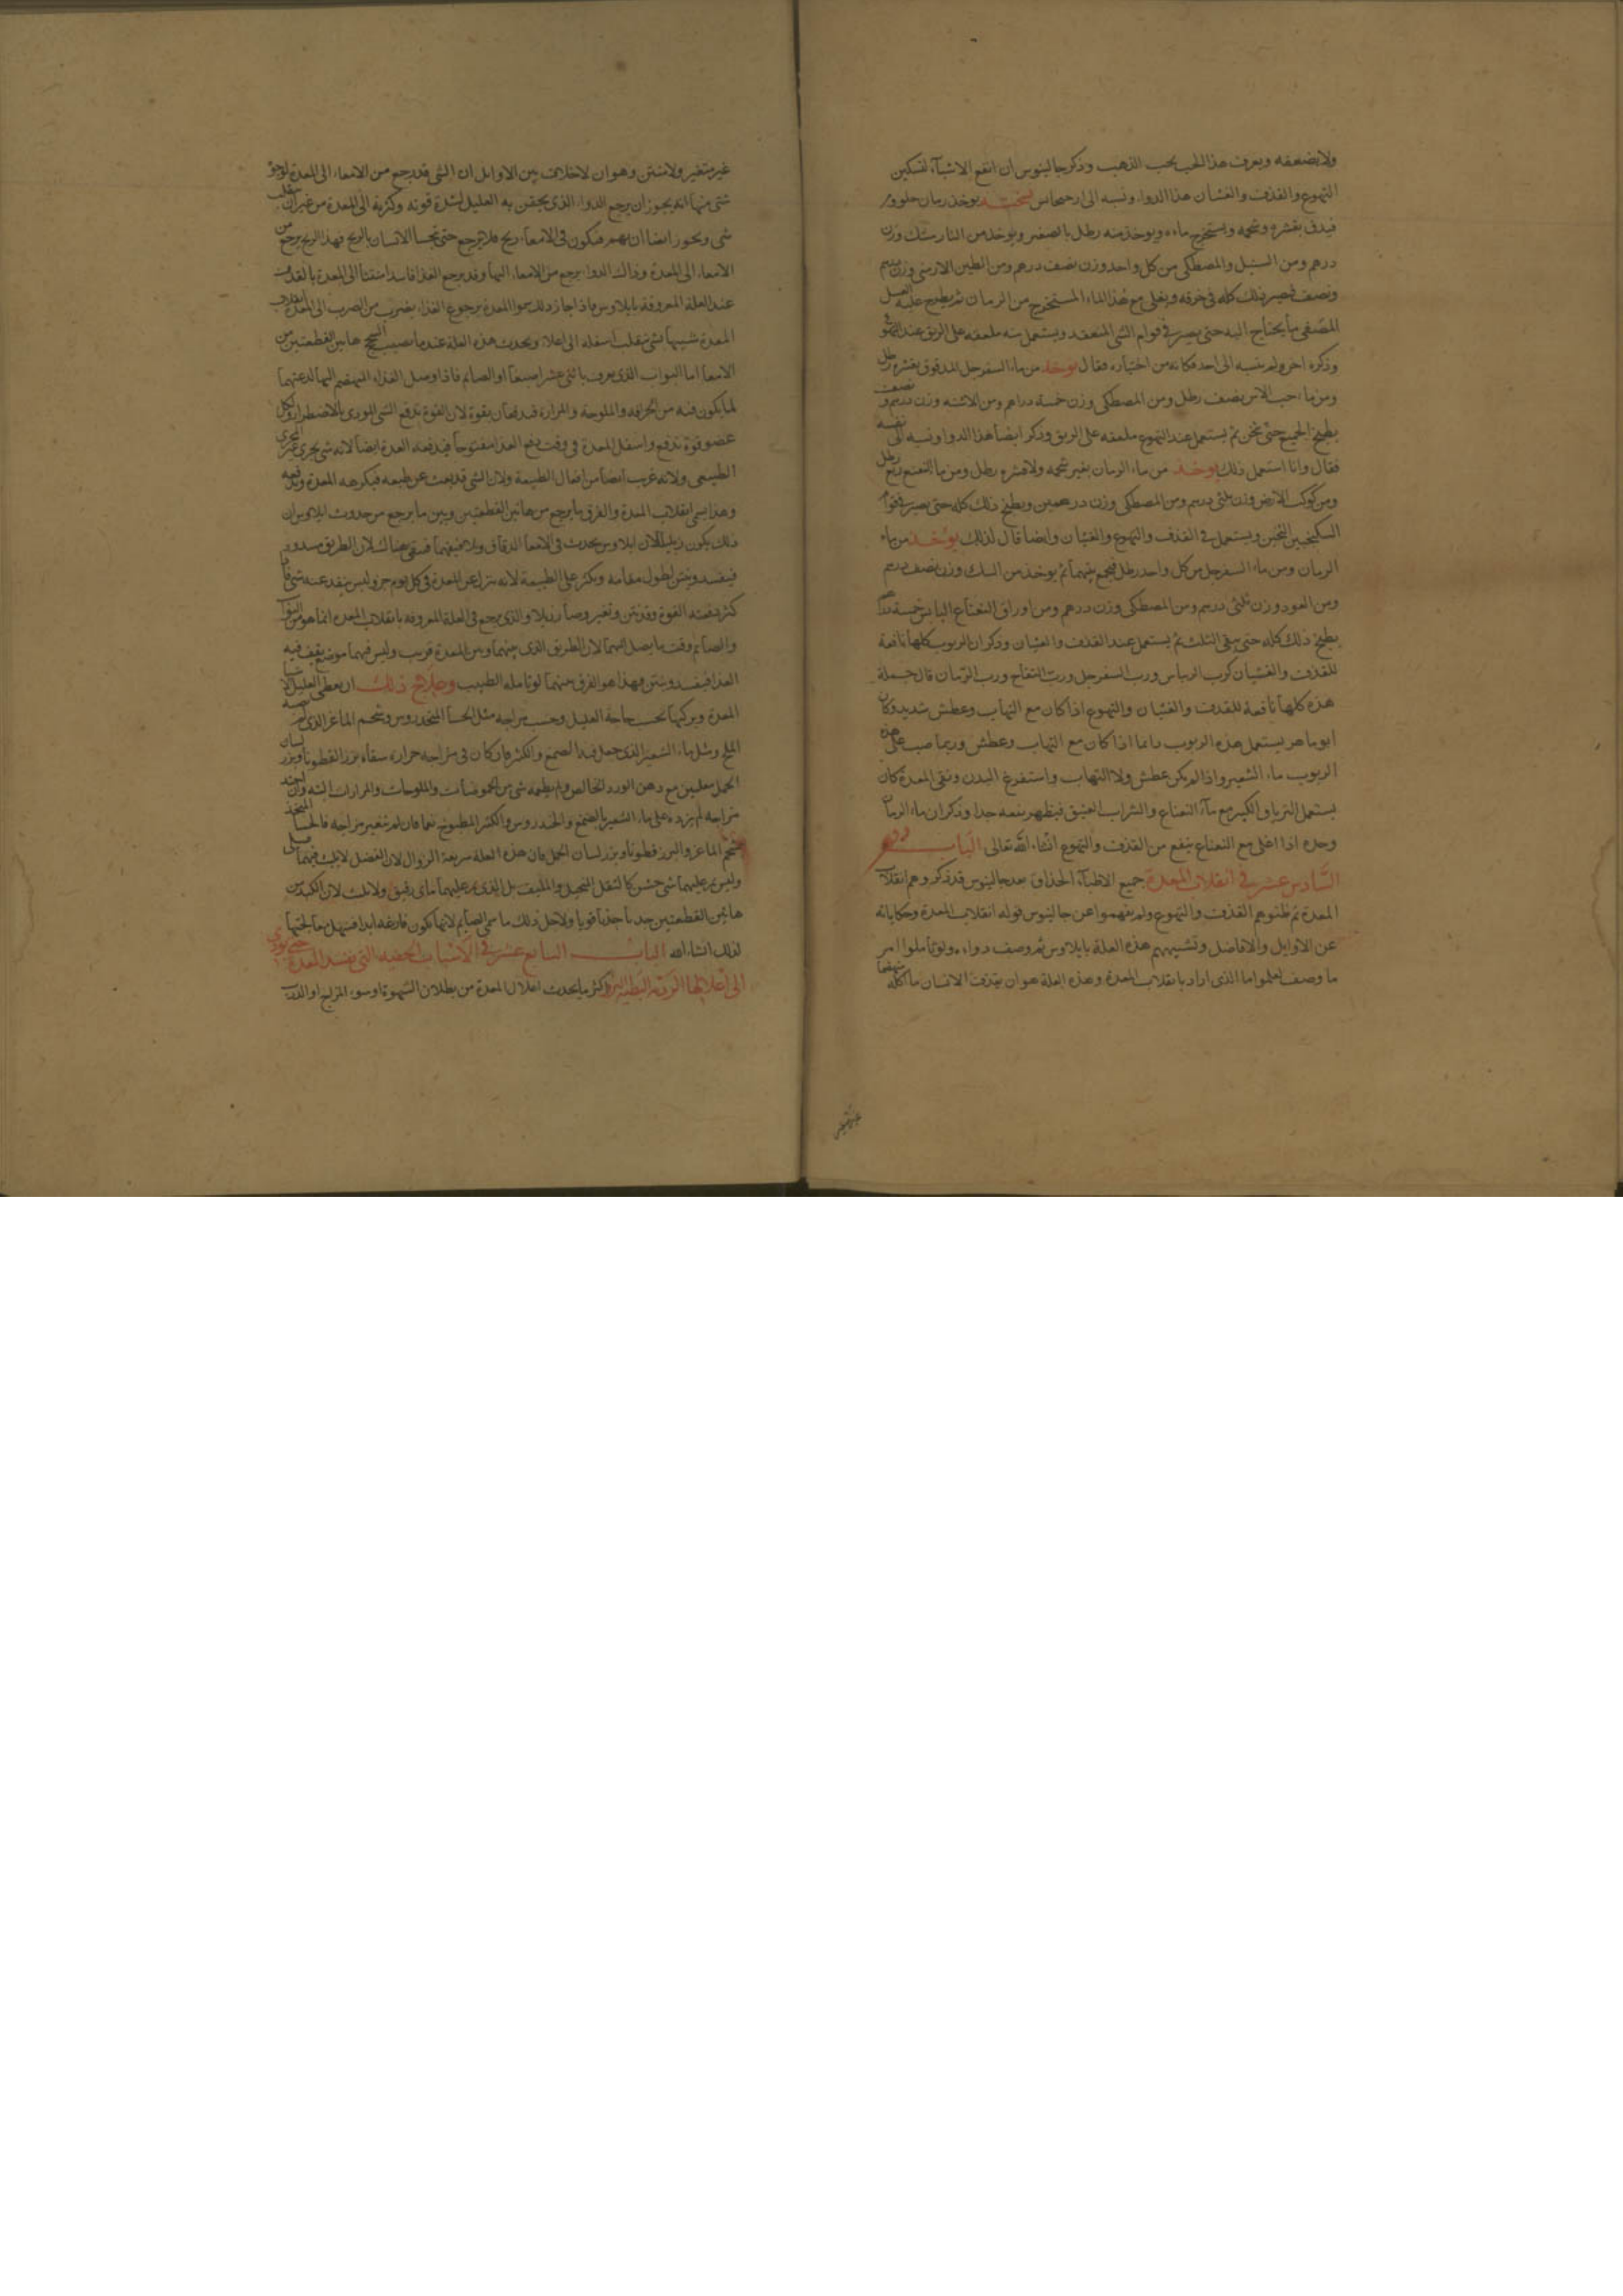 ولا يضعفه ويعرف هذا الحب بحب الذهب وذكر جالينوس ان انفع الاشياء لتسكين
التهوع والقذف والغثيان هذا الدواء ونسبه الى نسخته يوخذ رمان حلو ومز
فيدق بقشره وشحمه ويستخرج ماءه ويوخذ منه رطل بالصغير ويوخذ من النارمشك وزن
درهم ومن السنبل والمصطكى من كل واحد وزن نصف درهم ومن الطين الارمنى وزن درهم
ونصف فيصير ذلك كله فى خرقه ويغلى مع هذا الماء المستخرج من الرمان ثم يطرح عليه العسل
المصفى ما يحتاج اليه حتى يصير فى قوام الشى المنعقد ويستعمل منه ملعقه على الريق عند التهوع
وذكره اخر ولم ينسبه الى احد فكانه من اختياره فقال يوخذ من ماء السفرجل المدقوق بقشره رطل
ومن ماء حب الاس نصف رطل ومن المصطكى وزن خمسة دراهم ومن الاشنه وزن درهم ونصف
يطبخ الجميع حتى يثخن ثم يستعمل عند التهوع ملعقه على الريق وذكر ايضا هذا الدوا ونسبه الى نفسه
فقال وانا استعمل ذلك يوخذ من ماء الرمان بغير شحمه ولا قشره رطل ومن ماء النعنع ربع رطل
ومن كوكب الارض وزن ثلثى درهم ومن المصطكى وزن درهمين ويطبخ ذلك كله حتى يصير فى قوام
السكنجبين الثخين ويستعمل فى القذف والتهوع والغثيان وايضا قال لذلك يوخذ من ماء
الرمان ومن ماء السفرجل من كل واحد رطل فيجمع بينهما ثم يوخذ من السك وزن نصف درهم
ومن العود وزن ثلثى درهم ومن المصطكى وزن درهم ومن اوراق النعناع اليابس خمسة دراهم
يطبخ ذلك كله حتى يبقى الثلث ثم يستعمل عند القذف والغثيان وذكر ان الربوب كلها نافعة
للقذف والغثيان كرب الريباس ورب السفرجل ورب التفاح ورب الرمان قال جملة
هذه كلها نافعة للقذف والغثيان والتهوع اذا كان مع التهاب وعطش شديد وكان
ابو ماهر يستعمل هذه الربوب دائما اذا كان مع التهاب وعطش وربما صب على هذه
الربوب ماء الشعير واذا لم يكن عطش ولا التهاب واستفرغ البدن ونقى المعدة كان
يستعمل الترياق الكبير مع ماء النعناع والشراب العتيق فيظهر نفعه جدا وذكر ان ماء الرمان
وحده اذا اغلى مع النعناع ينفع من القذف والتهوع انشاء الله تعالى الباب
السادس عشر فى انقلاب المعدة جميع الاطباء الحذاق بعد جالينوس قد ذكروهم انقلاب
المعدة ثم ظنوهم القذف والتهوع ولم يفهموا عن جالينوس قوله انقلاب المعدة وحكاياته
عن الاوايل والافاضل وتشبيههم هذه العلة بايلاوس ثم وصف دواءه ولو تاملوا امر
ما وصف لعلموا ما الذى اراد بانقلاب المعدة وهذه العلة هو ان يقذف الانسان ما اكله
غير متغير ولا منتن وهو ان لا خلاف بين الاوايل ان الشى قد يرجع من الامعاء الى المعدة لوجوه
شتى منها انه يجوز ان يرجع الدواء الذى يحقن به العليل لشدة قوته وكثرته الى المعدة من غير ان ينقلب
شى ويجوز ايضا ان فيكون فى الامعاء ريح فلا يرجع حتى يجشا الانسان بالريح فهذا الريح يرجع من
الامعاء الى المعدة وذلك الدوا يرجع من الامعاء اليها وقد يرجع الغذا فاسدا منتنا الى المعدة بالقذف
عند العلة المعروفة بايلاوس فاذا جاز ذلك سموا المعدة برجوع الغذاء بضرب من الضرب الى المعدة انقلاب
المعدة تشبيها بشى ينقلب اسفله الى اعلاه ويحدث هذه العلة عندما يصيب السحج هاتين القطعتين من
الامعا اما البواب الذى يعرف باثنى عشر اصبعا او الصائم فاذا وصل الغذاء المنهضم اليها لدغتهما
لما يكون فيه من الحرافة والملوحة والمرارة فيدفعان بقوة لان القوة تدفع الشى الموذى بالاضطرار ولكل
عضو قوة تدفع واسفل المعدة فى وقت دفع الغذا مفتوحا فيدفعه المعدة ايضا لانه شى يجرى غير المجرى
الطبيعى ولانه غريب ايضا من افعال الطبيعة ولان الشى قد بعث عن طبعه فيكرهه المعدة وتدفعه
وهذا يسمى انقلاب المعدة والفرق ما يرجع من هاتين القطعتين وبين ما يرجع من حدوث ايلاوس ان
ذلك يكون زبليا لان ايلاوس يحدث فى الامعا الدقاق وتلافيفهما فيبقى هناك لان الطريق مسدود
فيفسد وينتن لطول مقامه ويكثر على الطبيعة لانه ينزل عن المعدة فى كل يوم جزو وليس ينفد عنه شى فاذا
كثر دفعته القوة وقد نتن وتغير وصار زبلا والذى يرجع فى العلة المعروفة بانقلاب المعدة انما هو من البواب
والصائم وقت ما يصل اليهما لان الطريق الذى بينهما وبين المعدة قريب وليس فيهما موضع يقف فيه
الغذا فيفسد وينتن فهذا هو الفرق بينهما لو تامله الطبيب وعلاج ذلك ان يعطى العليل
المعدة ويركبها بحسب حاجة العليل وحسب مزاجه مثل الحسا المتخذ وشحم الماعز الذى
الملح ومثل ماء الشعير الذى جعل فيه الصمغ والكثيرا فان كان فى مزاجه حرارة سقاه بزر القطونا وبزر لسان
الحمل مع دهن الورد الخالص ولم يطعمه شى من الحموضات والملوحات والمرارات البته وان
مزاجه لم يزده على ماء الشعير بالصمغ والخندروس والكشك المطبوخ نعما فان لم يتغير مزاجه فالحسا المتخذ
بشحم الماعز والبزر قطونا وبزر لسان الحمل فان هذه العلة سريعة الزوال لان الفضل لا يلبث فيهما
وليس يمر عليهما شى خشن كالثفل الثخيل والليف بل الذى يمر عليهما مائى رقيق ولا يلبث لان الكبد من
هاتين القطعتين جذبا قويا ولاجل ذلك ما سمى الصايم لانها تكون فارغة ابدا فيسهل معالجتها
لذلك انشاء الله الباب السابع عشر فى الاسباب الخفيه التى تفسد المعدة حتى يودى
الى اعلالها الردية البطيئة البرؤ اكثر ما يحدث اعلال المعدة من بطلان الشهوة او سوء المزاج او الذرب